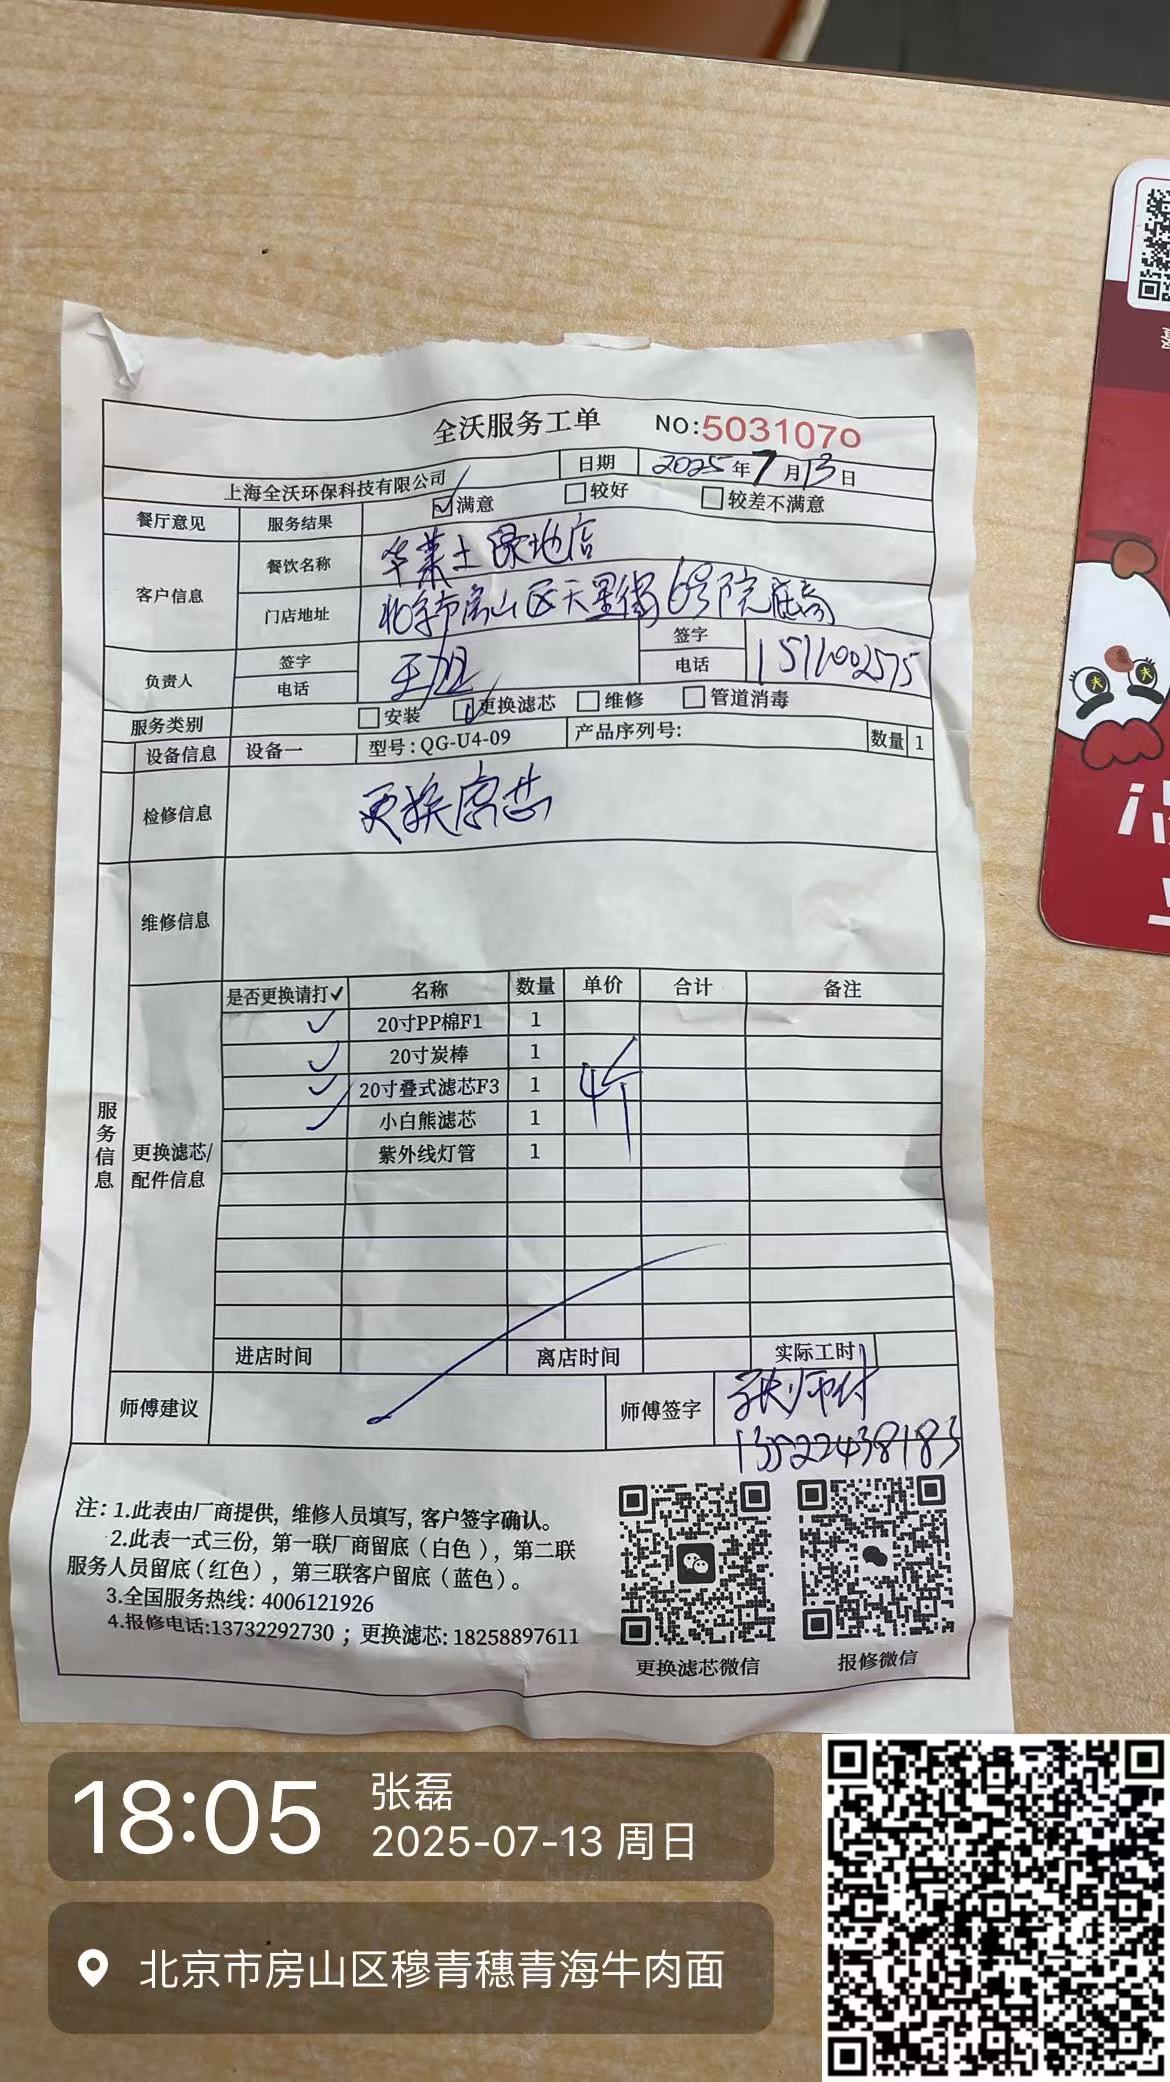 全沃服务工单 NO:5031070
上海全沃环保科技有限公司 日期 2025年7月13日
餐厅意见 服务结果 满意 较好 较差不满意
客户信息 餐饮名称 华莱士绿地店
门店地址 北京市房山区天星街6号院底商
负责人 签字 签字
电话 电话 15116002575
服务类别 安装 更换滤芯 维修 管道消毒
设备信息 设备一 型号:QG-U4-09 产品序列号: 数量 1
检修信息 更换滤芯
维修信息
服务信息
更换滤芯/
配件信息
是否更换请打✓ 名称 数量 单价 合计 备注
✓ 20寸PP棉F1 1
✓ 20寸炭棒 1
✓ 20寸叠式滤芯F3 1 4个
✓ 小白熊滤芯 1
紫外线灯管 1
进店时间 离店时间 实际工时
师傅建议 师傅签字 张师付
13522438183
注:1.此表由厂商提供，维修人员填写，客户签字确认。
2.此表一式三份，第一联厂商留底（白色），第二联
服务人员留底（红色），第三联客户留底（蓝色）。
3.全国服务热线: 4006121926
4.报修电话:13732292730 ；更换滤芯: 18258897611
更换滤芯微信 报修微信
18:05 张磊
2025-07-13 周日
北京市房山区穆青穗青海牛肉面